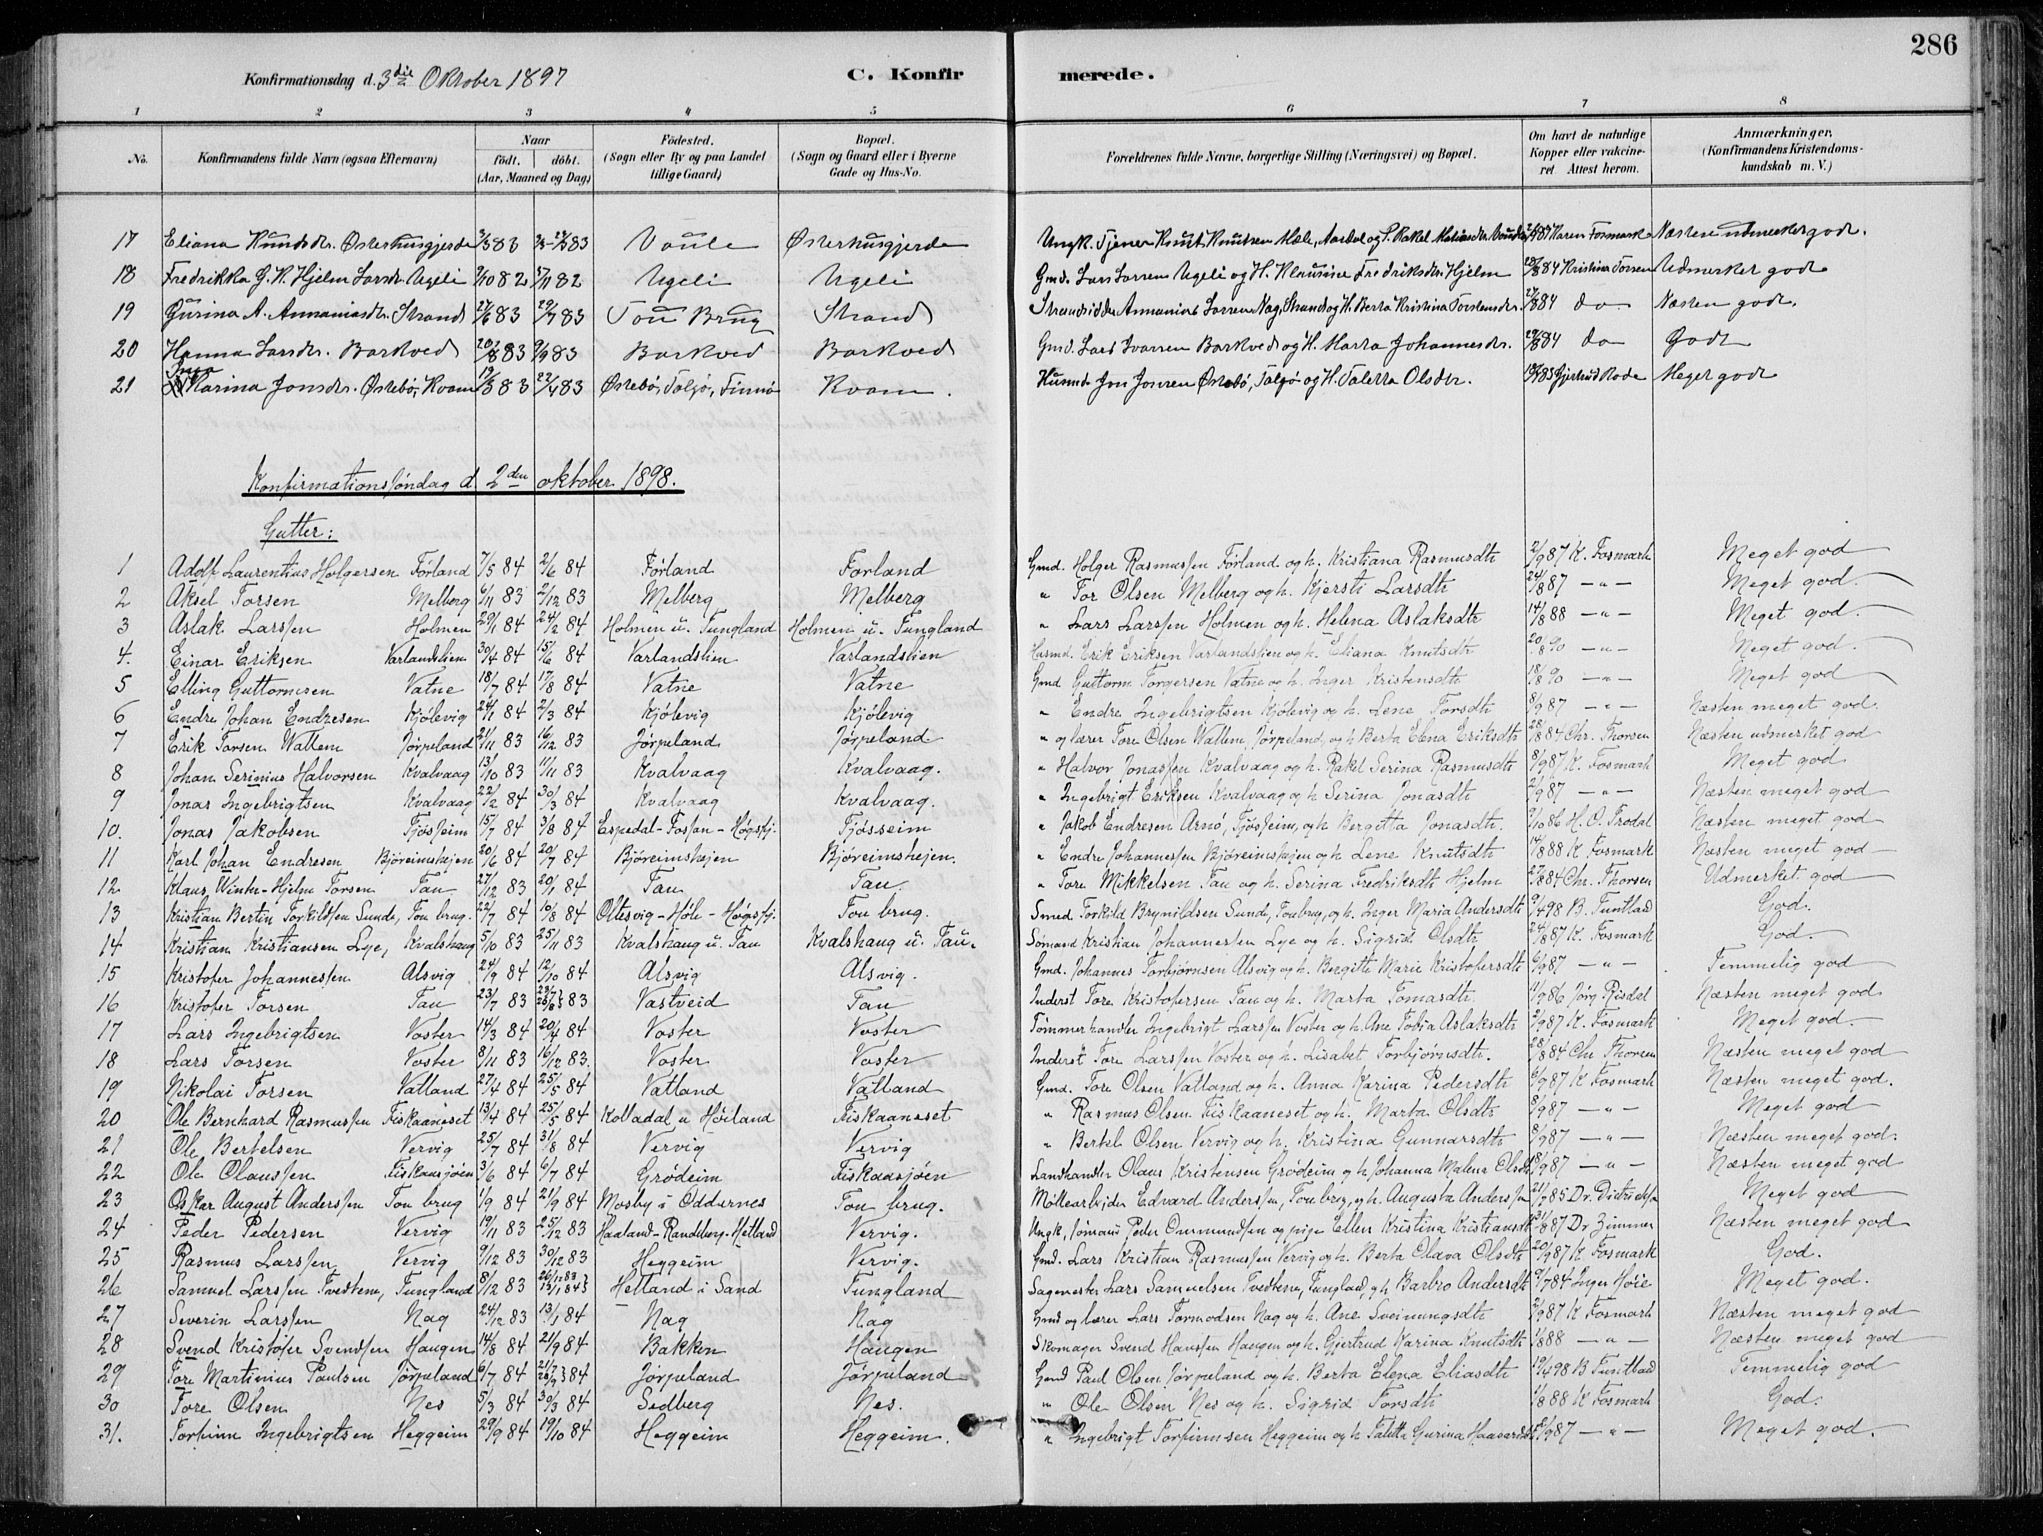 286
Konfirmationsdag d. 3die Oktober 1897 C. Konfirmerede.
1 2 3 4 5 6 7 8
No. Konfirmandens fulde Navn (ogsaa Efternavn) Naar født. døbt. (Aar, Maaned og Dag) Födested. (Sogn eller By og paa Landet tillige Gaard) Bopæl. (Sogn og Gaard eller i Byerne Gade og Hus-No. Forældrenes fulde Navne, borgerlige Stilling (Næringsvei) og Bopæl. Om havt de naturlige Kopper eller vakcineret Attest herom. Anmærkninger, (Konfirmandens Kristendomskundskab m. V.)
17 Eliana Knudsdtr. Østerhusgjerde 83 83 Voule Østerhusgjerde Ungk. Tjener Knut Knutsen Mæle, Aardal og P. Rakel 87 Karen Fosmark Næsten udmerket godt.
18 Fredrikka G. K. Hjelm Larsdr. Ugeli 2/10 82 /11 82 Ugeli Ugeli Gmd. Lars Larsen Ugeli og H. Klausine Fredriksdtr. Hjelm 28/8 84 Kristina Torsen Udmerket godt
19 Gurina A. Annaniasdr. Strand 27/6 83 29/7 83 Tou Brug Strand Strandsidder Annanias Larsen Nag, Strand og H. Berta Kristina Torstensdr. 27/8 84 do Næsten godt.
20 Hanna Larsdr. Barkved 20/8 83 9/9 83 Barkved Barkved Gmd. Lars Ivarsen Barkved og H. Marta Johannesdr. 29/8 84 do Godt
21 Inga Karina Jonsdr. Østebø, Kvam 19/3 83 22/4 83 Østebø, Talgø, Finnø Kvam. Husmd. Jon Jonsen Østebø, Talgø og H. Taletta Olsdtr. 85 Gjertrud Rode Meget godt
Konfirmationssøndag d. 2den oktober 1898.
Gutter:
1 Adolf Laurentius Holgersen Førland 7/5 84 2/6 84 Førland Førland Gmd. Holger Rasmussen Førland og h. Kristiana Rasmusdtr 2/9 87 K. Fosmark Meget god
2 Aksel Torsen Melberg 6/11 83 2/12 83 Melberg Melberg " Tor Olsen Melberg og h. Kjersti Larsdtr 24/8 87 — " — Meget god.
3 Aslak Larssen Holmen 29/1 84 24/2 84 Holmen u. Tungland Holmen u. Tungland " Lars Larssen Holmen og h. Helena Aslaksdtr 14/8 88 — " — Meget god.
4. Einar Eriksen Varlandslien 30/4 84 15/6 84 Varlandslien Varlandslien Husmd. Erik Eriksen Varlandslien og h. Eliana Knutsdtr 20/8 90 — " — Meget god.
5 Elling Guttormsen Vatne 18/7 84 17/8 84 Vatne Vatne Gmd Guttorm Torgersen Vatne og h. Inger Kristensdtr 18/8 90 — " — Meget god
6 Endre Johan Endresen Kjølevig 24/1 84 2/3 84 Kjølevig Kjølevig " Endre Ingebrigtsen Kjølevig og h. Lene Torsdtr 8/9 87 — " — Næsten meget god.
7 Erik Torsen Wallem Jørpeland 21/11 83 16/12 83 Jørpeland Jørpeland " og lærer Tore Olsen Wallem, Jørpeland, og h. Berta Elena Eriksdtr 28/8 84 Chr. Thorsen Næsten udmerket god
8 Johan Serinius Halvorsen Kvalvaag 13/10 83 11/11 83 Kvalvaag Kvalvaag. " Halvor Jonassen Kvalvaag og h. Rakel Serina Rasmusdtr 8/9 87 K. Fosmark Meget god
9 Jonas Ingebrigtsen Kvalvaag 22/2 84 30/3 84 Kvalvaag Kvalvaag. " Ingebrigt Eriksen Kvalvaag og h Serina Jonasdtr 2/9 87 — " — Næsten meget god
10. Jonas Jakobsen Tjøsseim 15/7 84 3/8 84 Espedal-Fossan-Høgsfj. Tjøsseim " Jakob Endresen Arnø, Tjøsseim, og h. Bergetta Jonasdtr. 7/10 86 H. O. Frodal Næsten meget god
11 Karl Johan Endresen Bjøreimshejen 20/6 84 20/7 84 Bjøreimshejen Bjøreimshejen. " Endre Johannessen Bjøreimshejen og h Lene Knutsdtr 14/8 88 K Fosmark Næsten meget god
12 Klaus Winter-Hjelm Torsen Tau 27/12 83 20/1 84 Tau Tau. " Tore Mikkelsen Tau og h. Serina Fredriksdtr Hjelm 27/8 84 Chr. Thorsen Udmerket god
13 Kristian Bertin Torkildsen Sunde, Tou brug. 22/7 84 10/8 84 Oltesvig-Høle-Høgsfj. Tou brug. Smed Torkild Brynildsen Sunde, Toubrug, og h. Inger Maria Andersdtr 9/4 98 B. Tuntlad God.
14 Kristian Kristiansen Lye, Kvalshaug 5/10 83 25/11 83 Kvalshaug u. Tau Kvalshaug u. Tau. Sømand Kristian Johannessen Lye og h. Sigrid Olsdtr 24/8 87 K. Fosmark God.
15 Kristofer Johannessen Alsvig 24/9 84 12/10 84 Alsvig Alsvig. Gmd. Johannes Torbjørnsen Alsvig og h. Bergitte Marie Kristofersdtr 6/9 87 — " — Temmelig god
16 Kristofer Torsen Tau 23/7 83 83 Vastveid Tau Inderst Tore Kristofersen Tau og h. Marta Tomasdtr. 11/9 86 Jørg Risdal Næsten meget god
17 Lars Ingebrigtsen Voster 14/3 84 20/4 84 Voster Voster Tømmerhandler Ingebrigt Larssen Voster og h. Ane Tobia Aslaksdtr 2/9 87 K. Fosmark Meget god.
18 Lars Torsen Voster 8/11 83 16/12 83. Voster Voster Inderst Tore Larssen Voster og h. Lisabet Torbjørnsdtr. 28/8 84 Chr Thorsen Næsten meget god
19 Nikolai Torsen Vatland 27/4 84 25/5 84 Vatland Vatland Gmd. Tore Olsen Vatland og h. Anna Karina Pedersdtr 6/9 87 K Fosmark Næsten meget god.
20 Ole Bernhard Rasmussen Fiskaaneset 13/4 84 25/5 84 Kolladal u Høiland Fiskaaneset " Rasmus Olsen Fiskaaneset og h. Marta Olsdtr 8/9 87 — " — Meget god
21 Ole Bertelsen Vervig 25/7 84 31/8 84 Vervig Vervig " Bertel Olsen Vervig og h. Kristina Gunnarsdtr 8/9 87 — " — Næsten meget god.
22 Ole Olaussen Fiskaasjøen 3/6 84 6/7 84 Grødeim Fiskaasjøen Landhandler Olaus Kristensen Grødeim og h Johanna Malena Olsdtr 8/9 87 — " — Næsten meget god
23 Oskar August Anderssen Tou brug 1/9 84 21/9 84 Mosby i Oddernes Tou brug. Møllearbeider Edvard Anderssen, Toubrug, og h. Augusta Anderssen 21/7 85 Dr. Meget god
24 Peder Pedersen Vervig 19/11 83 25/12 83 Haaland-Randeberg-Hetland Vervig. Ungk, sømand Peder Ommundsen og pige Ellen Kristina Kristiansdtr 31/8 87 Dr Zimmer Næsten meget god
25 Rasmus Larssen Vervig 9/12 83 30/12 83 Heggeim Vervig. Gmd. Lars Kristian Rasmussen Vervig og h. Berta Olava Olsdtr 20/9 87 K. Fosmark God.
26 Samuel Larssen Tvedtene, Tungland 8/12 83 26/12 83 13/1 84 Hetland i Sand Tungland Sagmester Lars Samuelsen Tvedtene, Tungland, og h Barbro Andersdtr 9/7 84 Inger Høie Meget god.
27 Severin Larssen Nag 24/12 83 13/1 84 Nag Nag Gmd og lærer Lars Tormodsen Nag og h. Ane Sveinungsdtr 2/9 87 K Fosmark Næsten meget god
28 Svend Kristofer Svendsen Haugen 14/8 84 21/9 84 Bakken Haugen Skomager Svend Hanssen Haugen og h. Gjertrud Karina Knutsdtr 1/8 88 — " — Næsten meget god
29 Tore Martinius Paulsen Jørpeland 6/7 84 84 Jørpeland Jørpeland Gmd Paul Olsen Jørpeland og h. Berta Elena Eliasdtr 19/4 98 B Tuntlad Temmelig god
30 Tore Olsen Nes 5/3 84 30/3 84 Sedberg Nes. " Ole Olsen Nes og h. Sigrid Torsdtr 1/8 88 K Fosmark God.
31. Torfinn Ingebrigtsen Heggeim 29/9 84 19/10 84 Heggeim Heggeim. " Ingebrigt Torfinnsen Heggeim og h Talette Gurina 87 — " — Meget god.